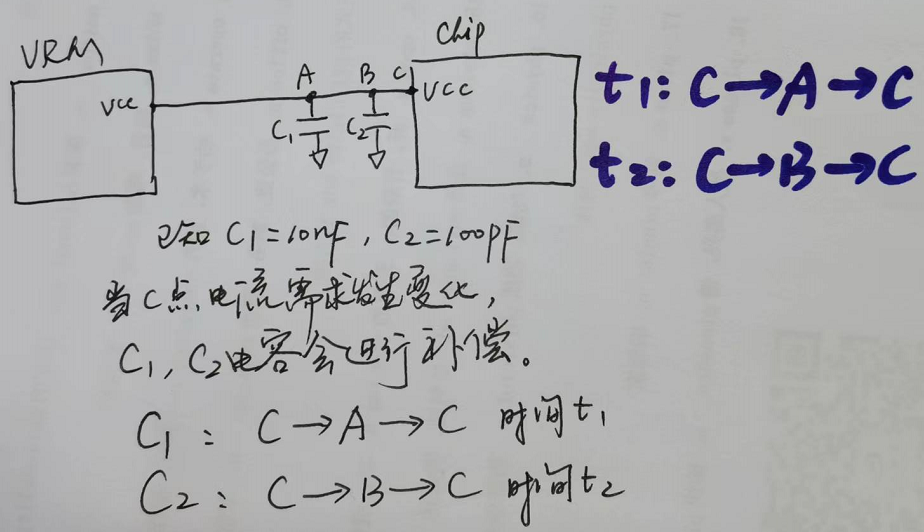 VRM
Chip
VCC
A
B
C
VCC
C1
C2
t1: C→A→C
t2: C→B→C
已知 C1=10nF, C2=100pF
当C点电流需求发生变化,
C1, C2电容会进行补偿。
C1: C→A→C 时间t1
C2: C→B→C 时间t2